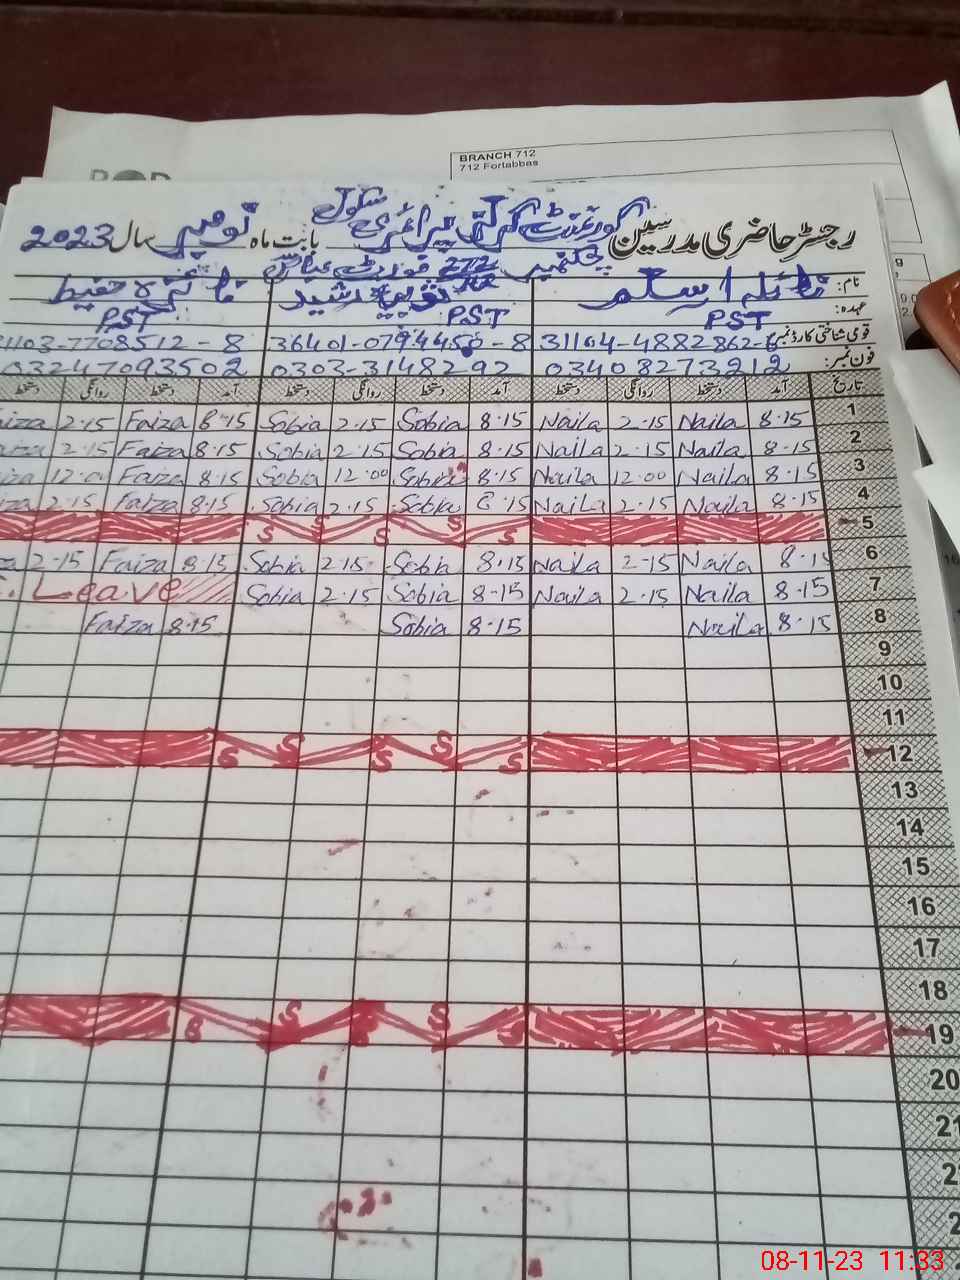 BRANCH 712
712 Fortabbas
رجسٹر حاضری مدرسین گورنمنٹ گرلز پرائمری سکول بابت ماہ نومبر سال 2023
چکنمبر 272 فورٹ عباس
نام: نائلہ اسلم ثوبیہ رشید فائزہ حفیظ
عہدہ: PST PST PST
قومی شناختی کارڈ نمبر 31104-4882862-6 36401-0794450-8 31103-7708512-8
فون نمبر: 03408273212 0303-3148292 03247093502
تاریخ آمد دستخط روانگی دستخط آمد دستخط روانگی دستخط آمد دستخط روانگی دستخط
aiza 2.15 Faiza 8.15 Sobia 2.15 Sobia 8.15 Naila 2.15 Naila 8.15 1
iza 2.15 Faiza 8.15 Sobia 2.15 Sobia 8.15 Naila 2.15 Naila 8.15 2
iza 12.00 Faiza 8.15 Sobia 12.00 Sobia 8.15 Naila 12.00 Naila 8.15 3
iza 2.15 Faiza 8.15 Sobia 2.15 Sobia 8.15 Naila 2.15 Naila 8.15 4
S S S S S 5
za 2.15 Faiza 8.15 Sobia 2.15 Sobia 8.15 Naila 2.15 Naila 8.15 6
Leave Sobia 2.15 Sobia 8.15 Naila 2.15 Naila 8.15 7
Faiza 8.15 Sobia 8.15 Naila 8.15 8
9
10
11
S S S S S 12
13
14
15
16
17
18
S S S S S 19
20
08-11-23 11:33